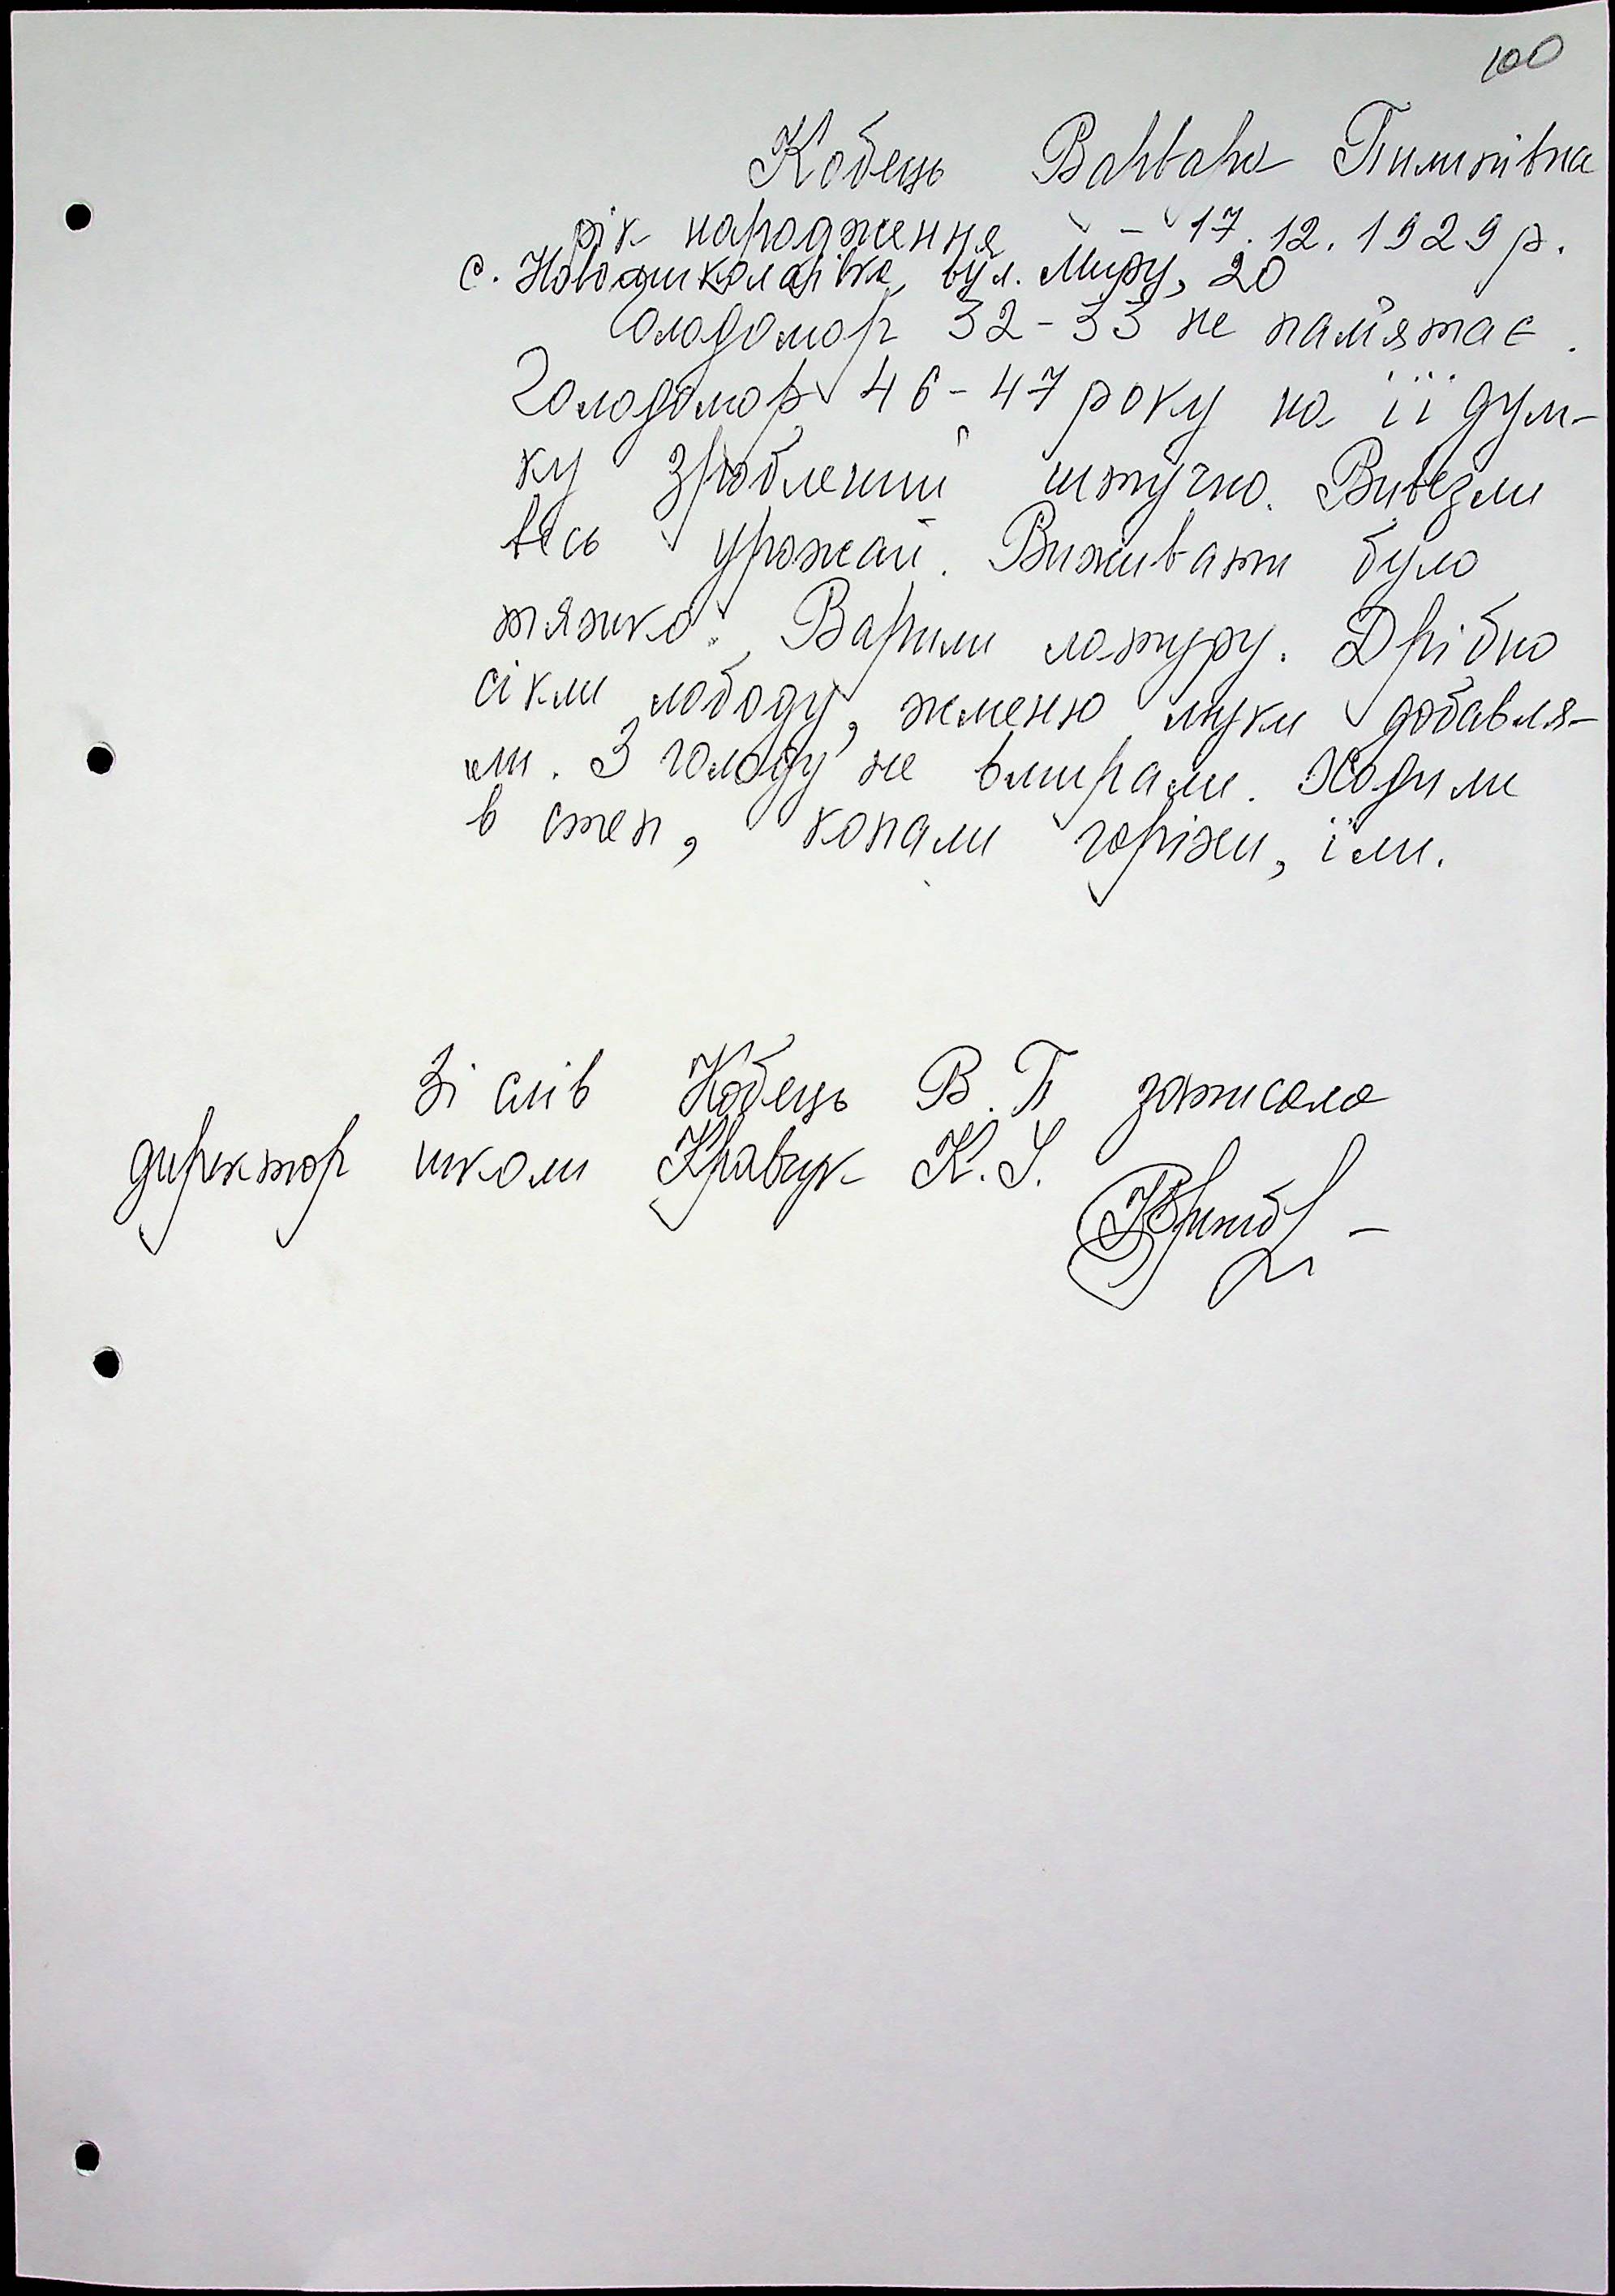 100
Кобець Варвара Пилипівна
рік народження - 17.12.1929 р.
с. Новомиколаївка, вул. Миру, 20
Голодомор 32-33 не пам'ятає.
Голодомор 46-47 року на її дум-
ку зроблений штучно. Вивезли
весь урожай. Виживати було
тяжко. Варили затуру. Дрібно
сікли лободу, жменю муки добавля-
ли. З голоду не вмирали. Ходили
в степ, копали горіхи, їли.
Зі слів Кобець В. П. записала
директор школи Кравчук К. І.